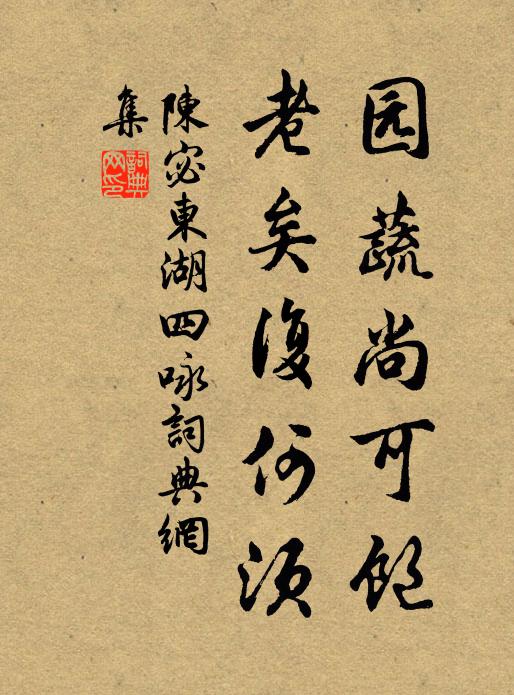 园蔬尚可飽
老矣復何須
陳宓東湖四咏詞典網
集
詞典
网印